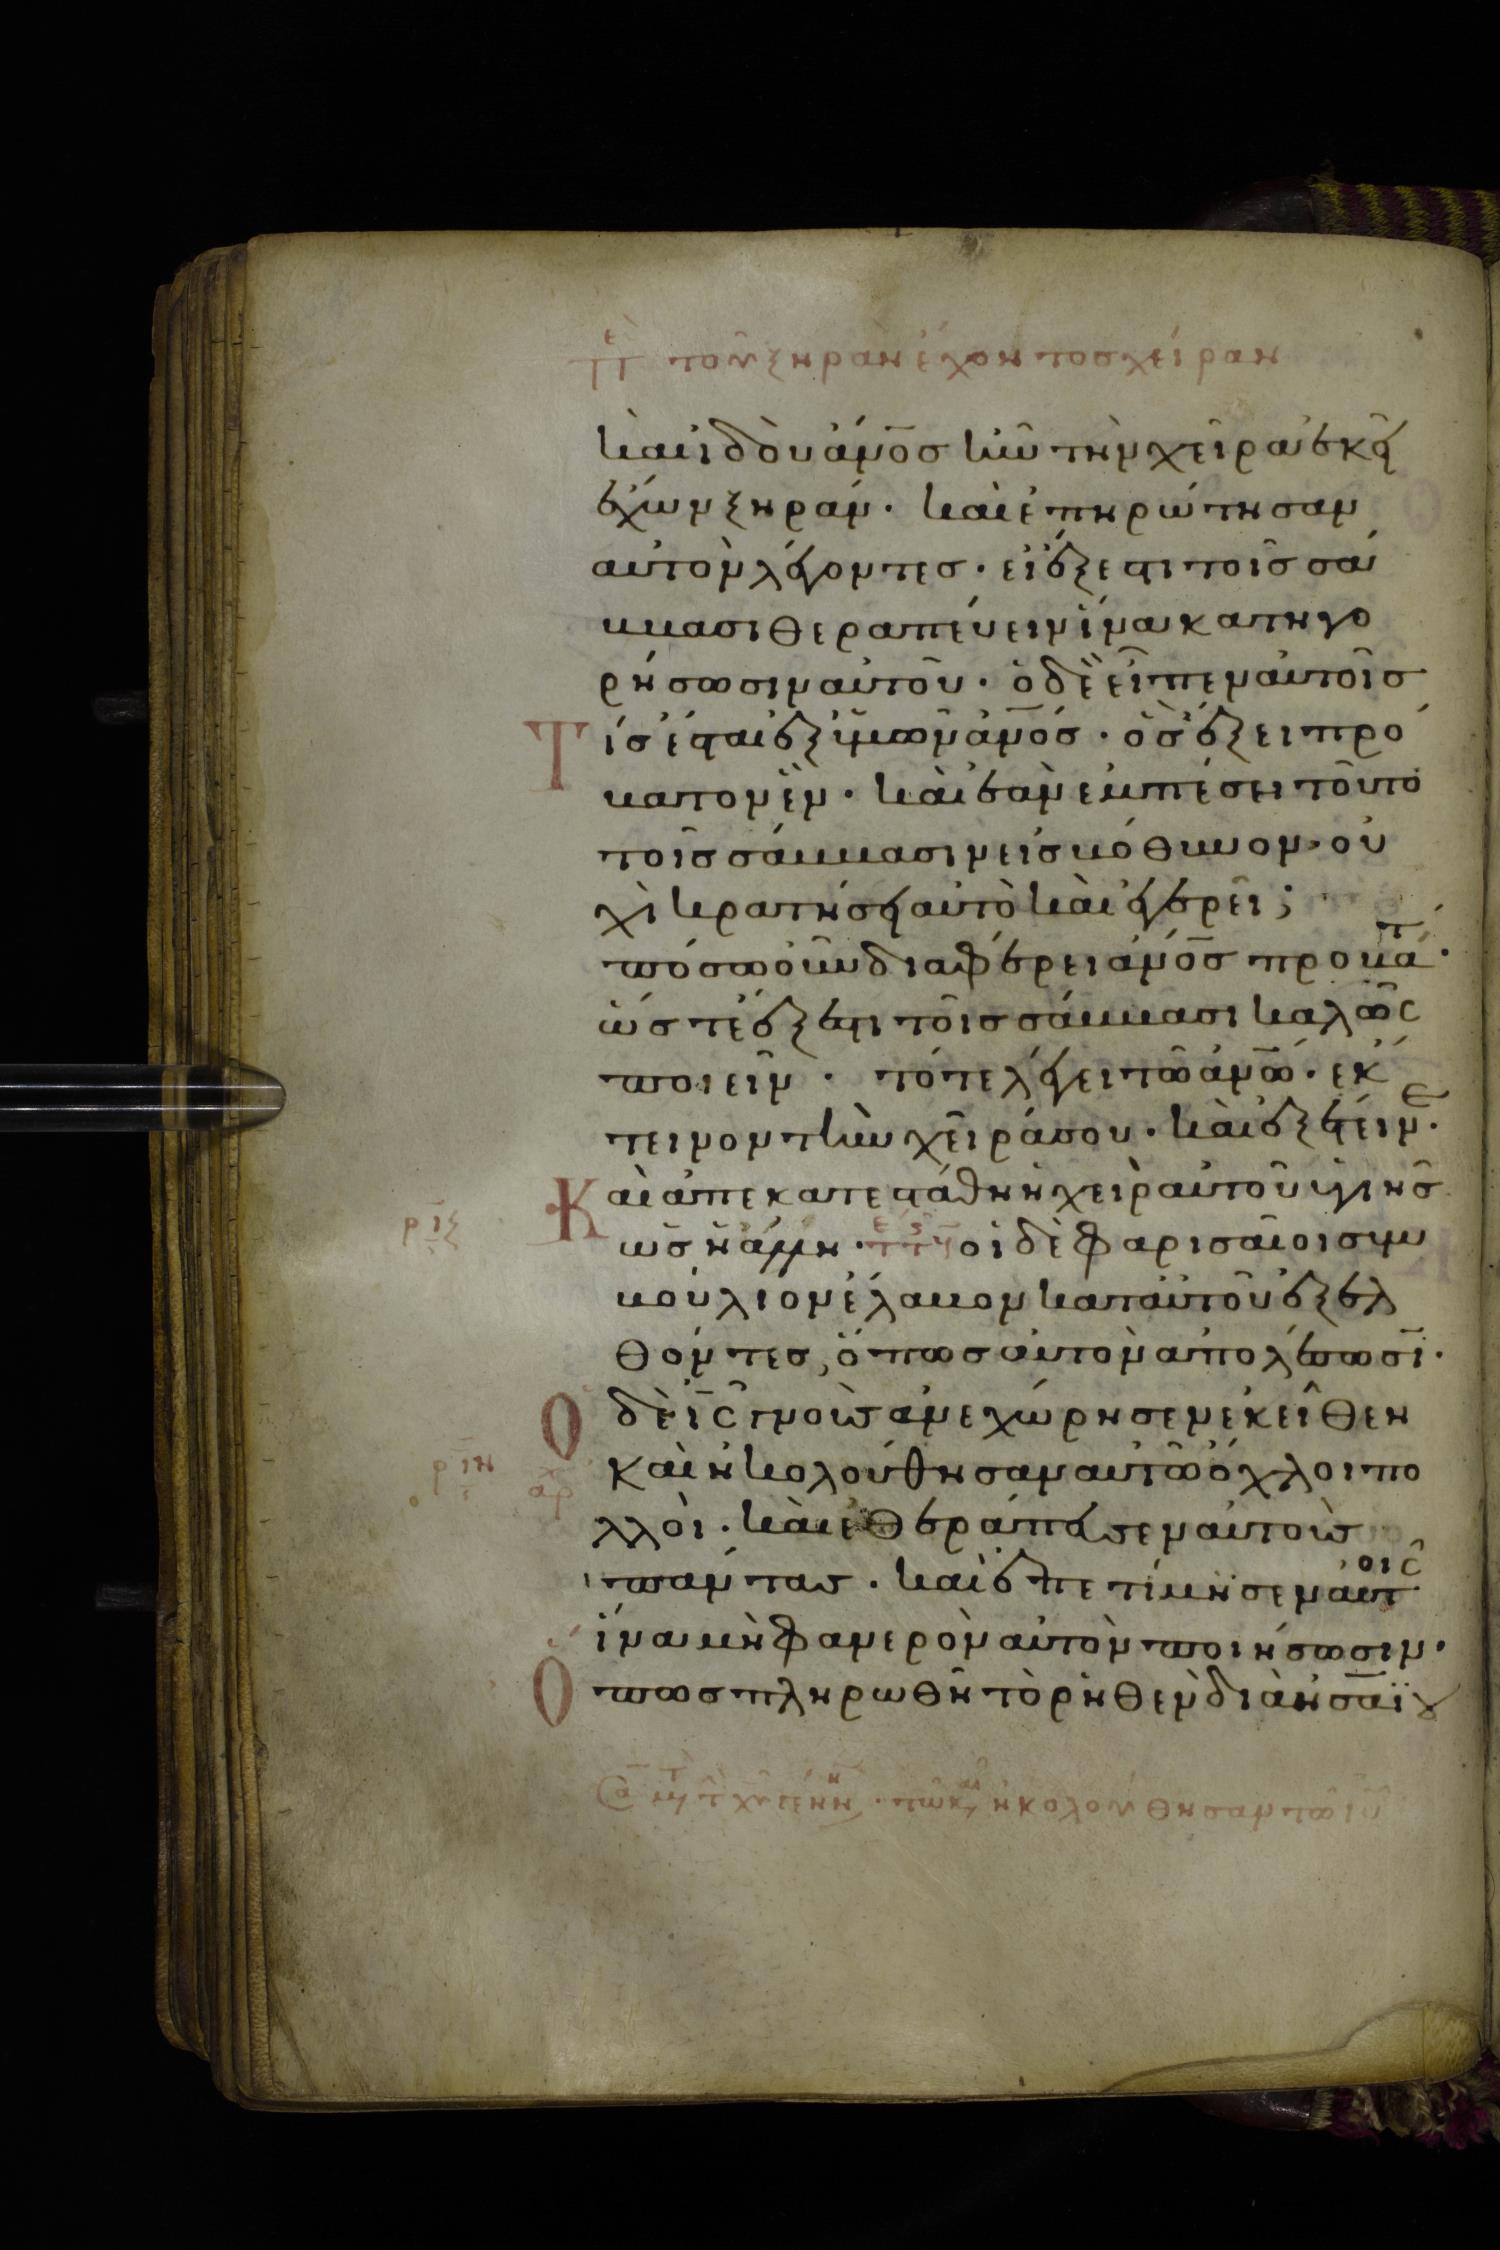 πε τοῦ ξηρὰν ἔχοντοσ χείραν
καὶ ἰδοὺ ἀν̅ο̅σ ἦν τὴν χεῖρα ἐκεῖ
ἔχων ξηράν· καὶ ἐπηρώτησαν
αὐτὸν λέγοντεσ· εἰ ἔξεστι τοῖσ σάβ
βασι θεραπεύειν ἵνα κατηγο
ρήσωσιν αὐτοῦ· ὁ δὲ εἶπεν αὐτοῖσ
Τίσ ἔσται ἐξ ὑμῶν ἀν̅ο̅σ· ὃσ ἕξει πρό
βατον ἓν· καὶ ἐὰν ἐμπέσει τοῦτο
τοῖσ σάββασιν εἰσ βόθυνον· οὐ
χὶ κρατήσει αὐτὸ καὶ ἐγερεῖ;
πόσω οὖν διαφέρει ἀν̅ο̅σ προβάτ·
ὥστε ἔξεστι τοῖσ σάββασι καλῶσ
ποιεῖν· τότε λέγει τῶ ἀν̅ω̅· ἔκ
τεινον τὴν χεῖρά σου· καὶ ἐξέτεινε·
Καὶ ἀπεκατεστάθη ἡ χεὶρ αὐτοῦ ὑγιὴσ
ρ̅ι̅ϛ ὡσ ἡ ἄλλη· οἱ δὲ φαρισαῖοι συμ
βούλιον ἔλαβον κατ αὐτοῦ ἐξελ
θόντεσ, ὅπωσ αὐτὸν ἀπολέσωσι·
Ὁ δὲ ι̅σ̅ γνοὺσ ἀνεχώρησεν ἐκεῖθεν
ρ̅ι̅η ἀρ καὶ ἠκολούθησαν αὐτῶ ὄχλοι πο
λλοὶ· καὶ ἐθεράπευσεν αὐτοὺσ
πάντασ· καὶ ἐπετίμησεν αὐτοῖσ
ἵνα μὴ φανερὸν αὐτὸν ποιήσωσιν·
Ὅπωσ πληρωθῆ τὸ ρηθὲν διὰ ἡσαΐου
ἠκολούθησαν τῶ ι̅υ̅